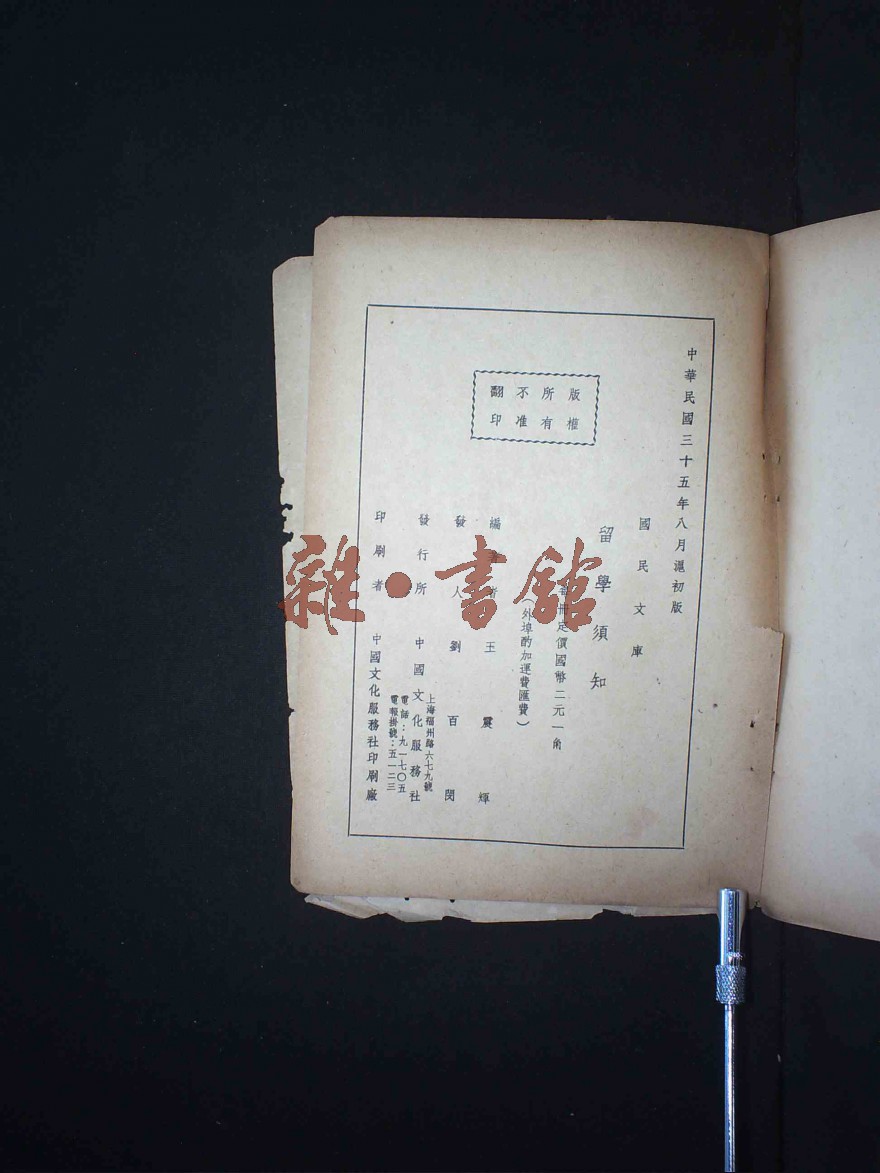 中華民國三十五年八月滬初版
版權
所有
不准
翻印
國民文庫
留學須知
冊定價國幣二元一角
（外埠酌加運費匯費）
編者王震輝
發人劉百閔
發行所中國文化服務社
上海福州路六七九號
電話：九一七〇五
電報掛號：五一二三
印刷者中國文化服務社印刷廠
雜·書館